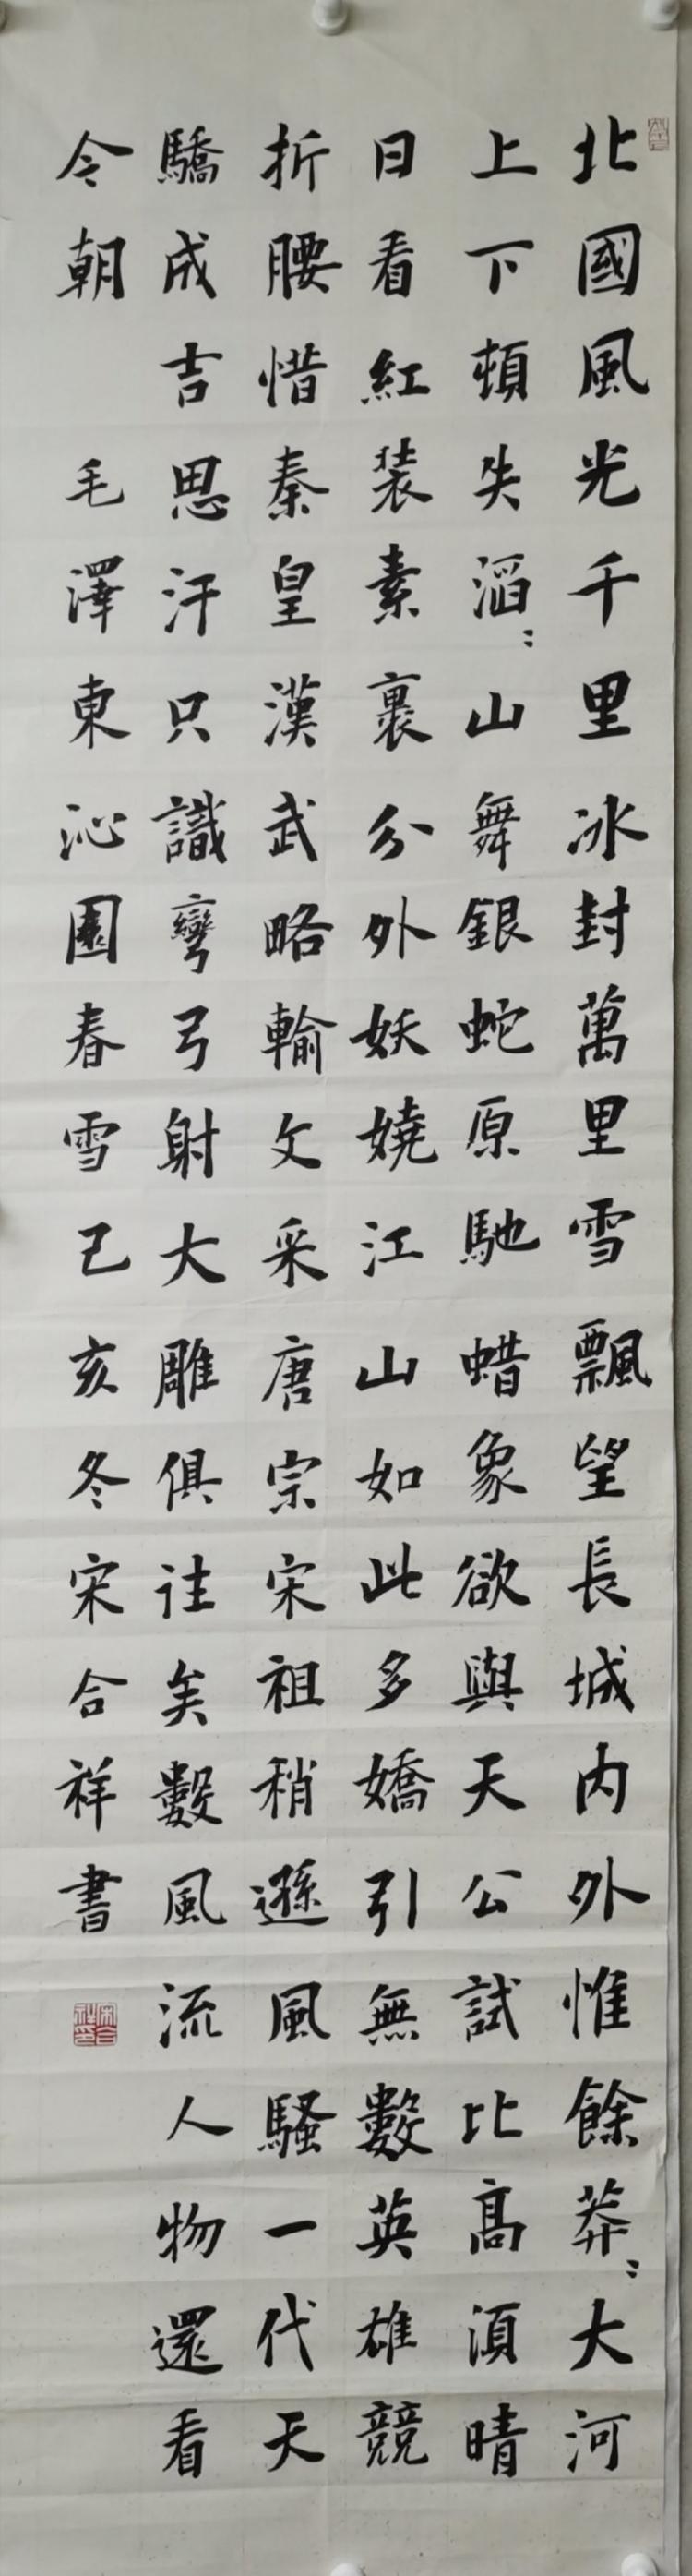 北國風光千里冰封萬里雪飄望長城内外惟餘莽〻大河
上下頓失滔〻山舞銀蛇原馳蜡象欲與天公試比高須晴
日看紅装素裹分外妖嬈江山如此多嬌引無數英雄競
折腰惜秦皇漢武略輸文采唐宗宋祖稍遜風騷一代天
驕成吉思汗只識彎弓射大雕俱往矣數風流人物還看
今朝
毛澤東沁園春雪己亥冬宋合祥書
宋合祥印